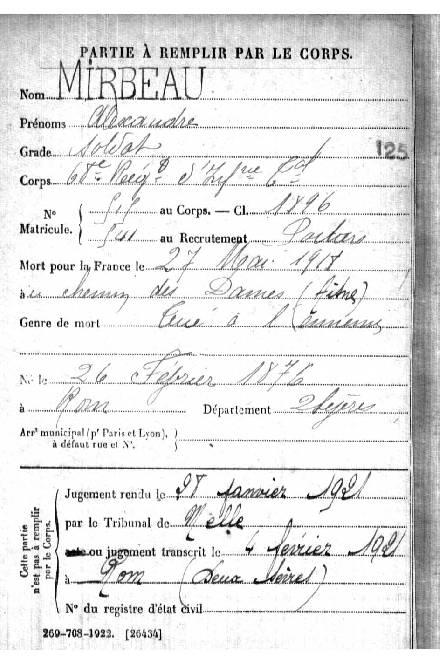 PARTIE À REMPLIR PAR LE CORPS.
Nom MIRBEAU
Prénoms Alexandre
Grade Soldat
125
Corps 68e Rég d'Inf
N° Matricule.
au Corps. — Cl. 1896
541 au Recrutement Poitiers
Mort pour la France le 27 Mai 1918
à au chemin des Dames (Aisne)
Genre de mort Tué à l'Ennemi
Né le 26 Février 1876
à Rom Département 2 Sèvres
Arrt municipal (pr Paris et Lyon),
à défaut rue et N°.
Cette partie n'est pas à remplir par le Corps.
Jugement rendu le 28 Janvier 1921
par le Tribunal de Melle
acte ou jugement transcrit le 4 février 1921
à Rom (Deux Sèvres)
N° du registre d'état civil
269-708-1922. [26434]